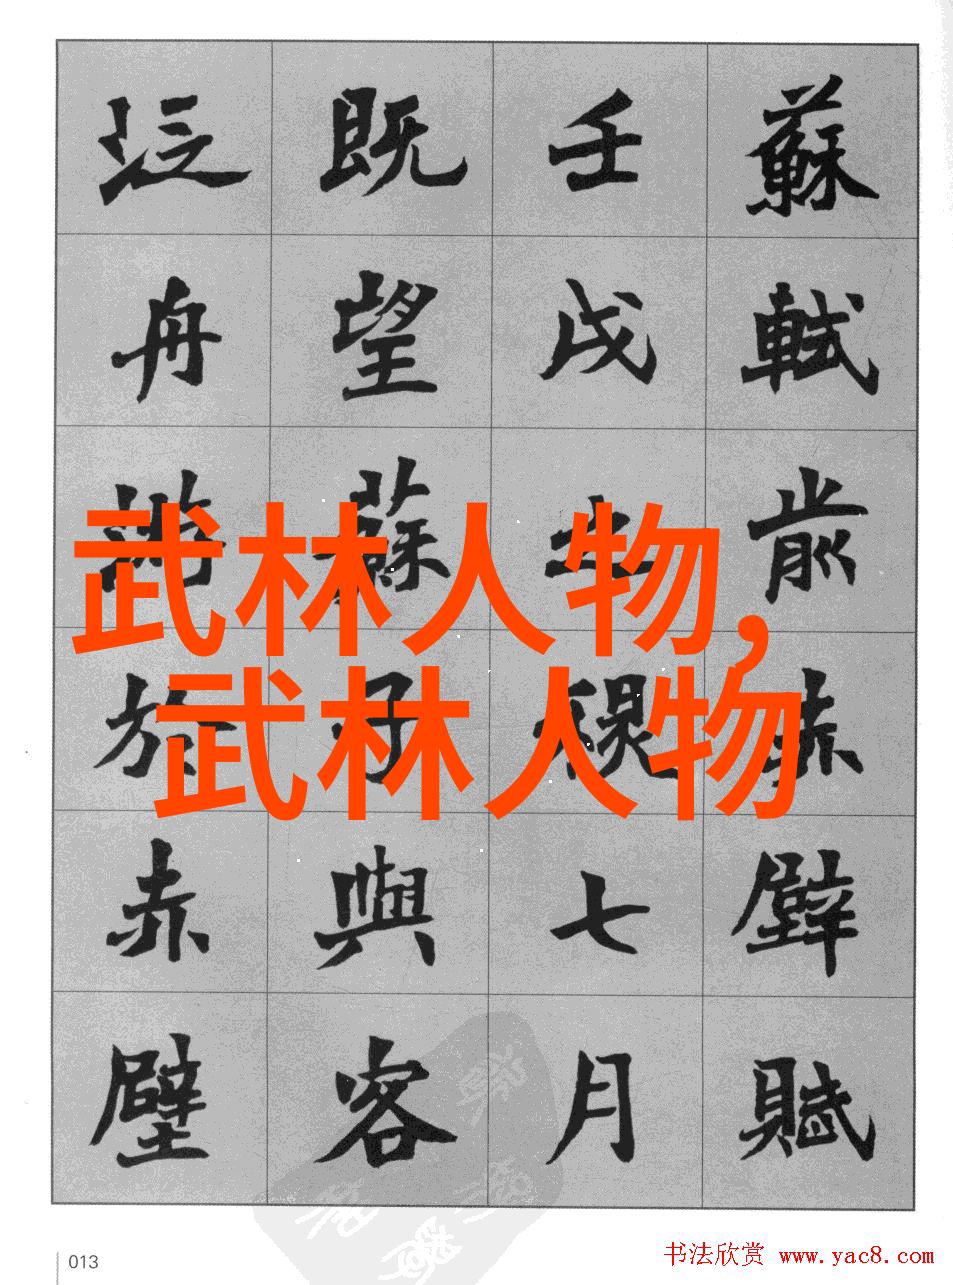 蘇軾前赤壁賦
壬戌之七月
既望蘇子與客
泛舟於赤壁
武林人物,
武林人物
013
书法欣赏 www.yac8.com